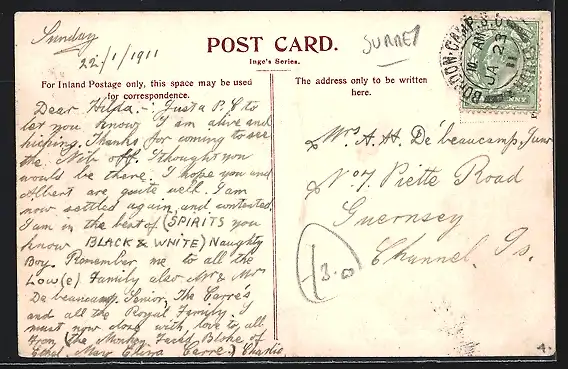 Sunday
22/1/1911
POST CARD.
Inge's Series.
SURREY
For Inland Postage only, this space may be used
for correspondence.
The address only to be written
here.
BORDON·CAMP·S.O.
10 AM
JA 23
11
Dear Hilda. - Just a P.C to
let you know I am alive and
kicking. Thanks for coming to see
the Note off. I thought you
would be there. I hope you and
Albert are quite well. I am
now settled again, and contented.
I am in the best of (SPIRITS you
know BLACK & WHITE) Naughty
Boy. Remember me to all the
Low(e) Family also Mr & Mrs
De beaucamp. Senior, The Carre's
and all the Royal Family. I
must now close with, love to, all
From (the Monkey Faced Bloke of
Ethel, Mary Elma Carre.) Charlie
Mrs A. H. De beaucamp, Junr
No 7. Piette Road
Guernsey
Channel. Is.
13.00
4.